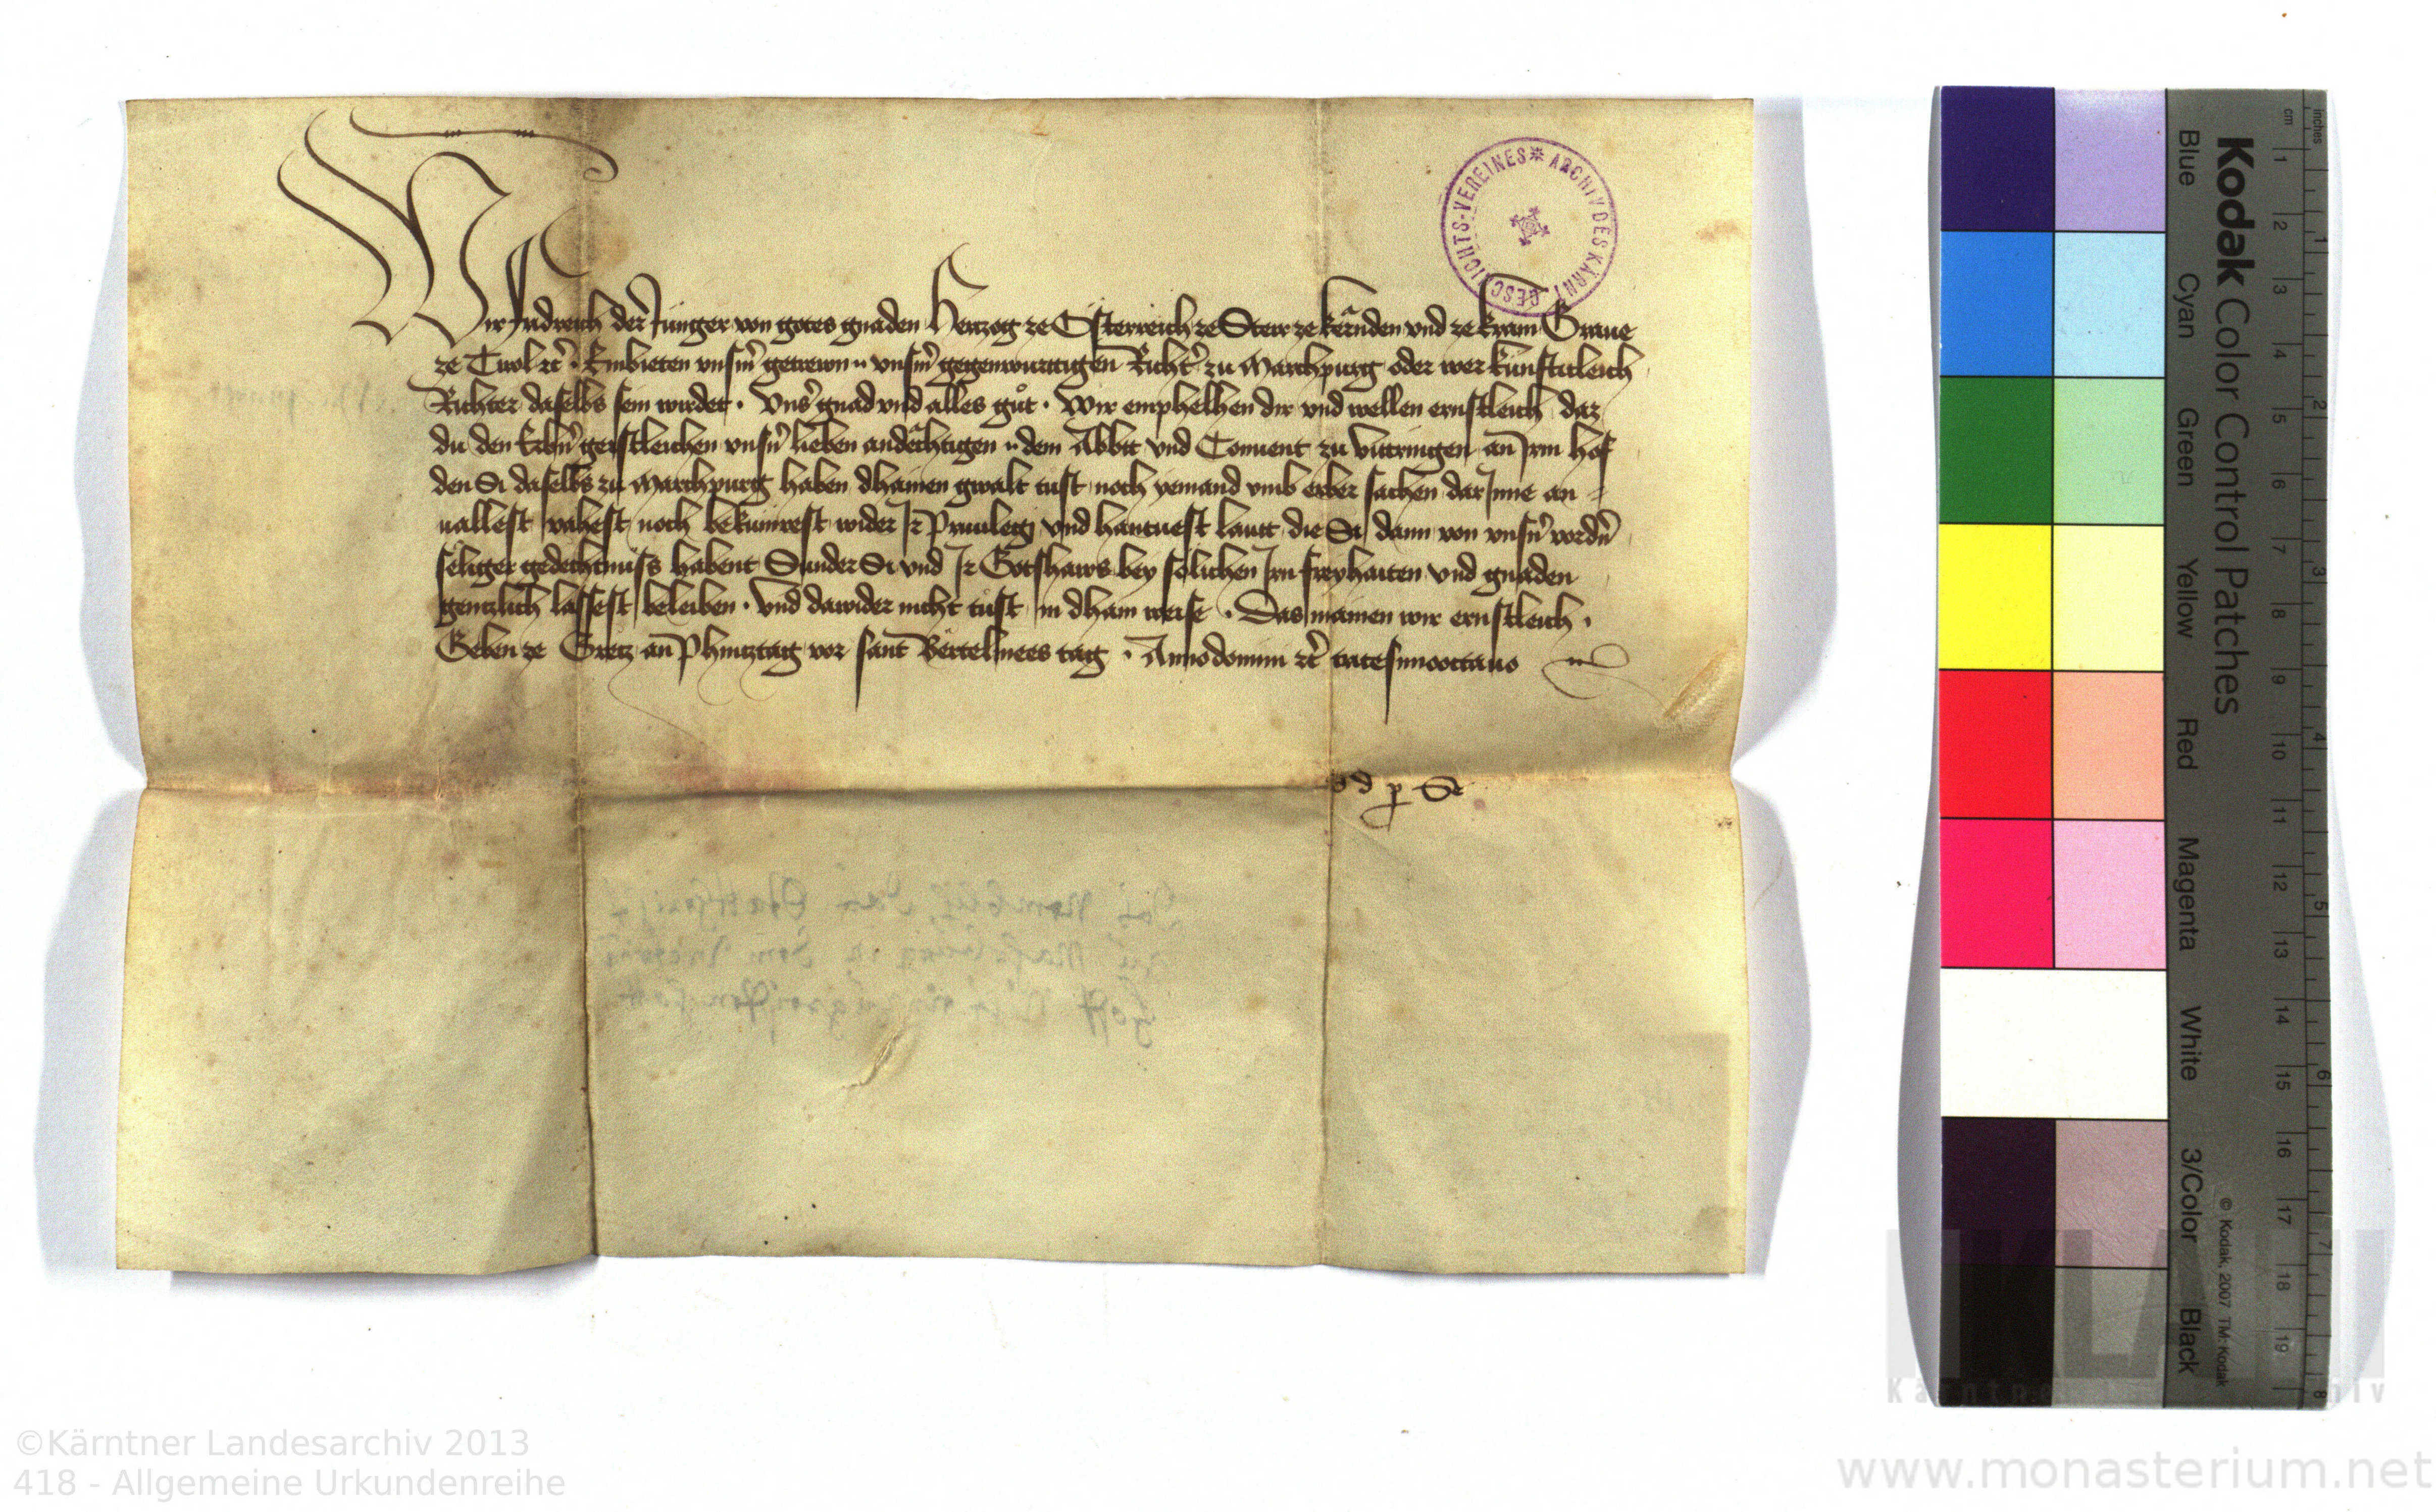 Wir Fridreich der Jünger von gotes gnaden Herczog ze Österreich ze Steir ze kernden vnd ze krain Graue
ze Tirol ꝛc̃ · Embieten vnsm̃ getrewn ·· vnsm̃ gegenwurttigen Richt̃ zu Marchpurg oder wer künfticleich
Richter daselbs sein wirdet · Vns̃ gnad vnd alles gůt · Wir emphelhen dir vnd wellen ernstleich daz
du den Erbn̄ geistleichen vnsn̄ lieben andechtigen ·· dem Abbt vnd Conuent zu Vittringen an Irm hof
den Si daselbs zu Marchpurg haben dhainen gwalt tust noch yemand vmb erber sachen dar Inne an
uallest vahest noch bekumrest wider Ir Priuilegj vnd hantuest lautt die Si dann von vnsn̄ vordn̄
seliger gedechtnüss habent Sunder Si vnd Ir Gotshaws bey solichen Irn freyhaiten vnd gnaden
genczlich lassest beleiben · Vnd dawider nicht tust in dhain weise · Das mainen wir ernstleich ·
Geben ze Gretz an Phincztag vor sant Bertelmees tag · Anno domini ꝛc̃ tricesimooctauo
d d p Se
ARCHIV DES KÄRNT. GESCHICHTS-VEREINES
Kodak Color Control Patches
Blue Cyan Green Yellow Red Magenta White 3/Color Black
© Kodak, 2007 TM: Kodak
inches 1 2 3 4 5 6 7 8
cm 1 2 3 4 5 6 7 8 9 10 11 12 13 14 15 16 17 18 19
KLA
Kärntner Landesarchiv
©Kärntner Landesarchiv 2013
418 - Allgemeine Urkundenreihe
www.monasterium.net